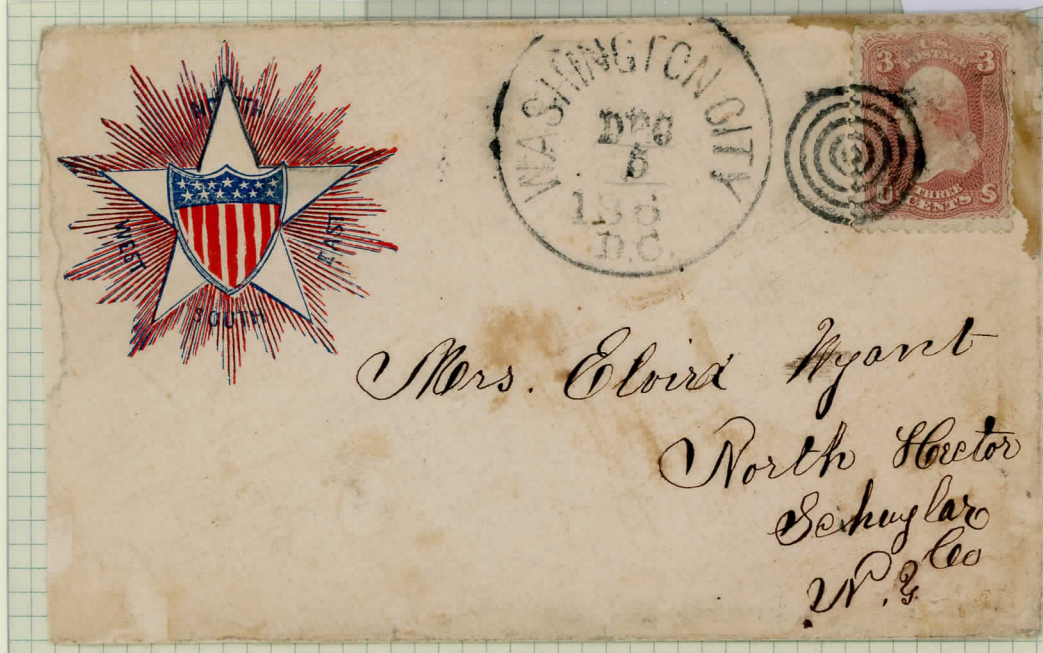 NORTH
WEST
EAST
SOUTH
WASHINGTON CITY
DEC
5
186
D.C.
3 U.S. 3
POSTAGE
THREE
U CENTS S
Mrs. Elvira Wyant
North Hector
Schuylar
Co
N.Y.